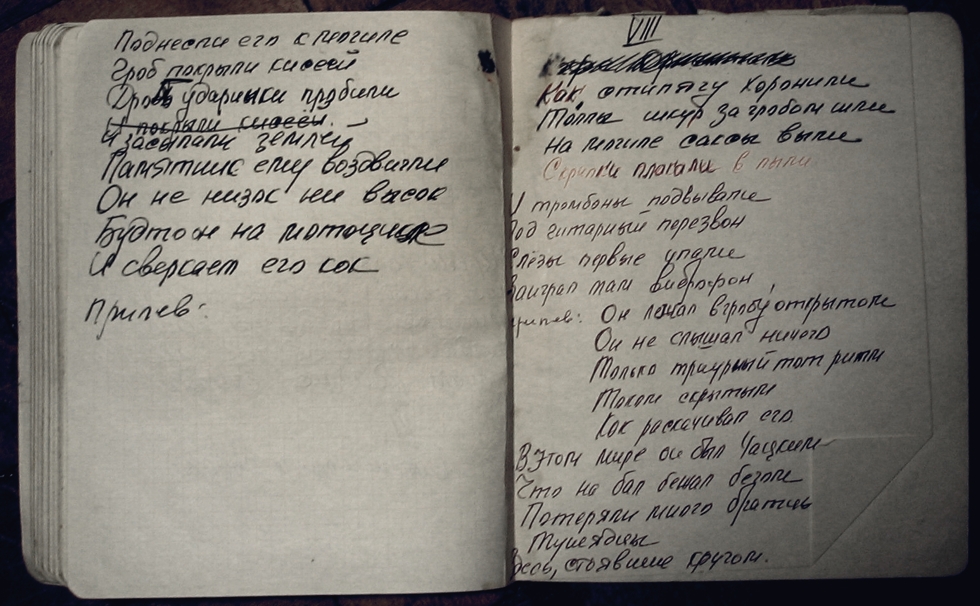 Поднесли его к могиле
Гроб покрыли кисеей
Дробь ударники пробили
И покрыли кисеей.
И засыпали землей
Памятник ему воздвигли
Он не низок ни высок
Будто он на мотоцикле
И сверкает его кок
Припев:
VIII
Как стилягу хоронили
Толпы шкур за гробом шли
На могиле саксы выли
Скрипки плакали в пыли
И тромбоны подвывали
Под гитарный перезвон
Слёзы первые упали
Заиграл там виброфон
Припев: Он лежал в гробу открытом
Он не слышал ничего
Только траурный тот ритм
Током скрытым
Как раскачивал его
В этом мире он был Чацким
Что на бал бежал
Потеряли много братцы
Тунеядцы
Здесь, стоявшие кругом.